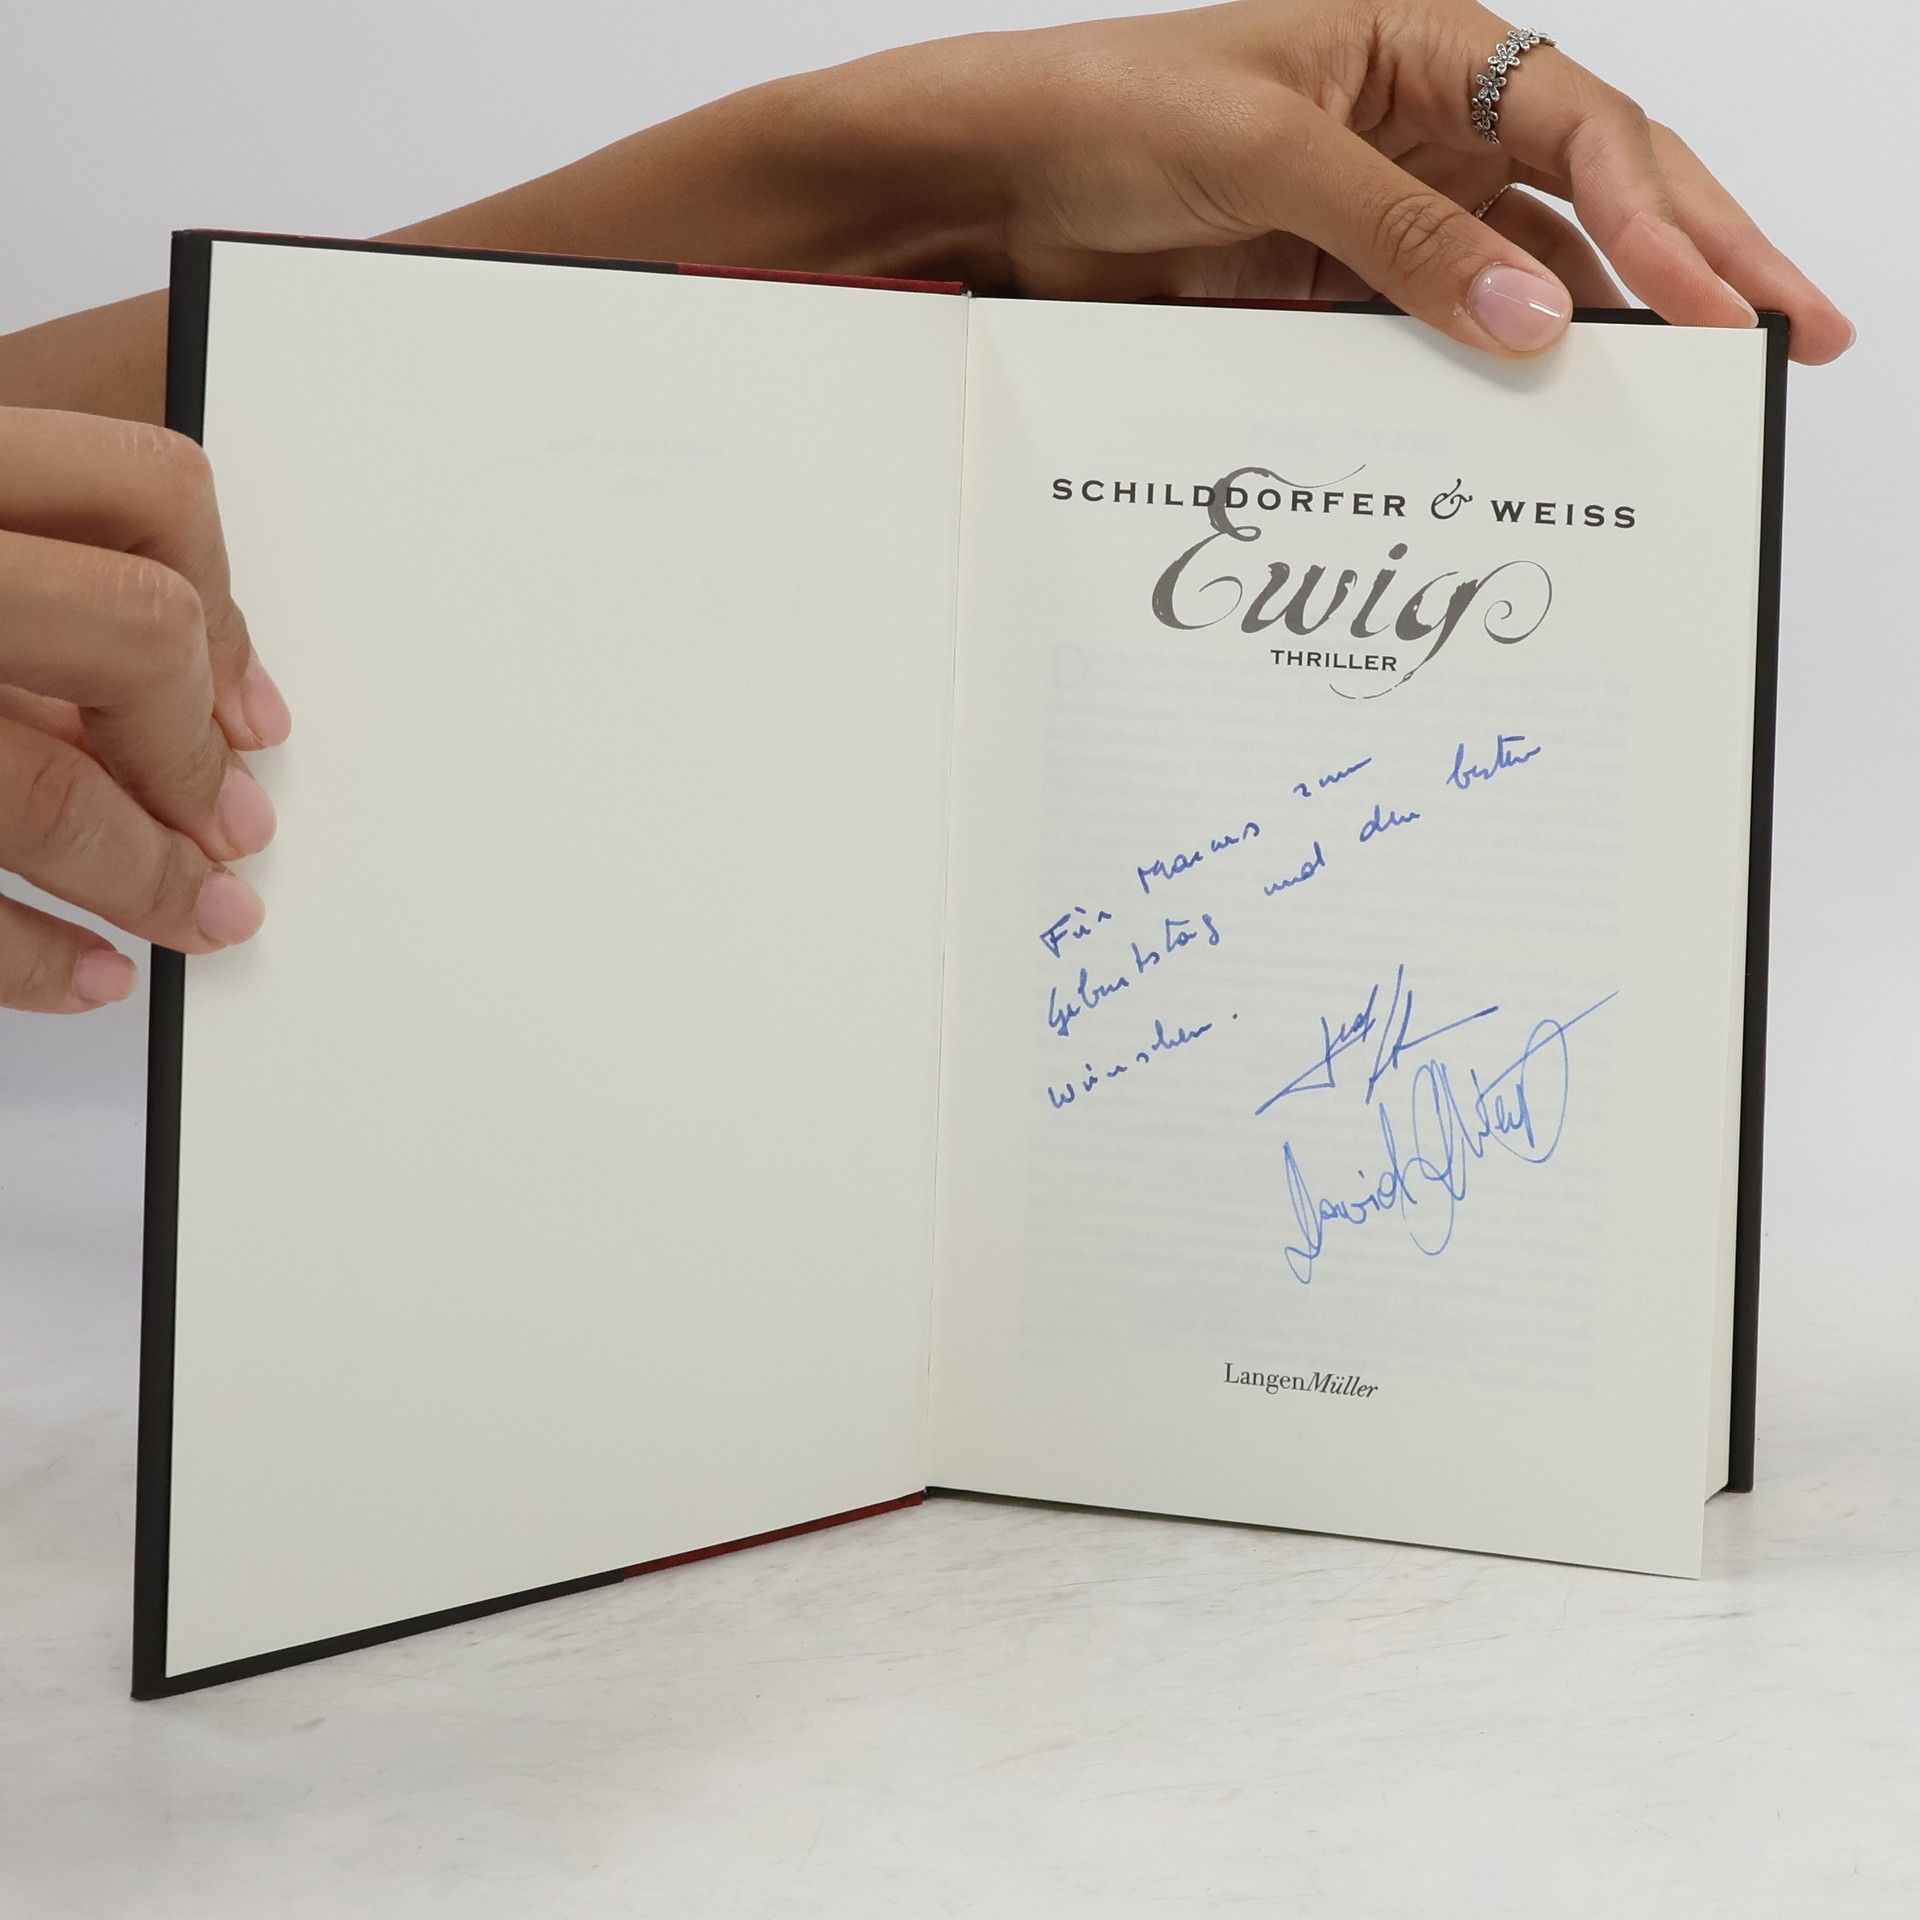 SCHILDDORFER & WEISS
Ewig
THRILLER
Für Marcus zum
Geburtstag und den besten
Wünschen.
David
LangenMüller